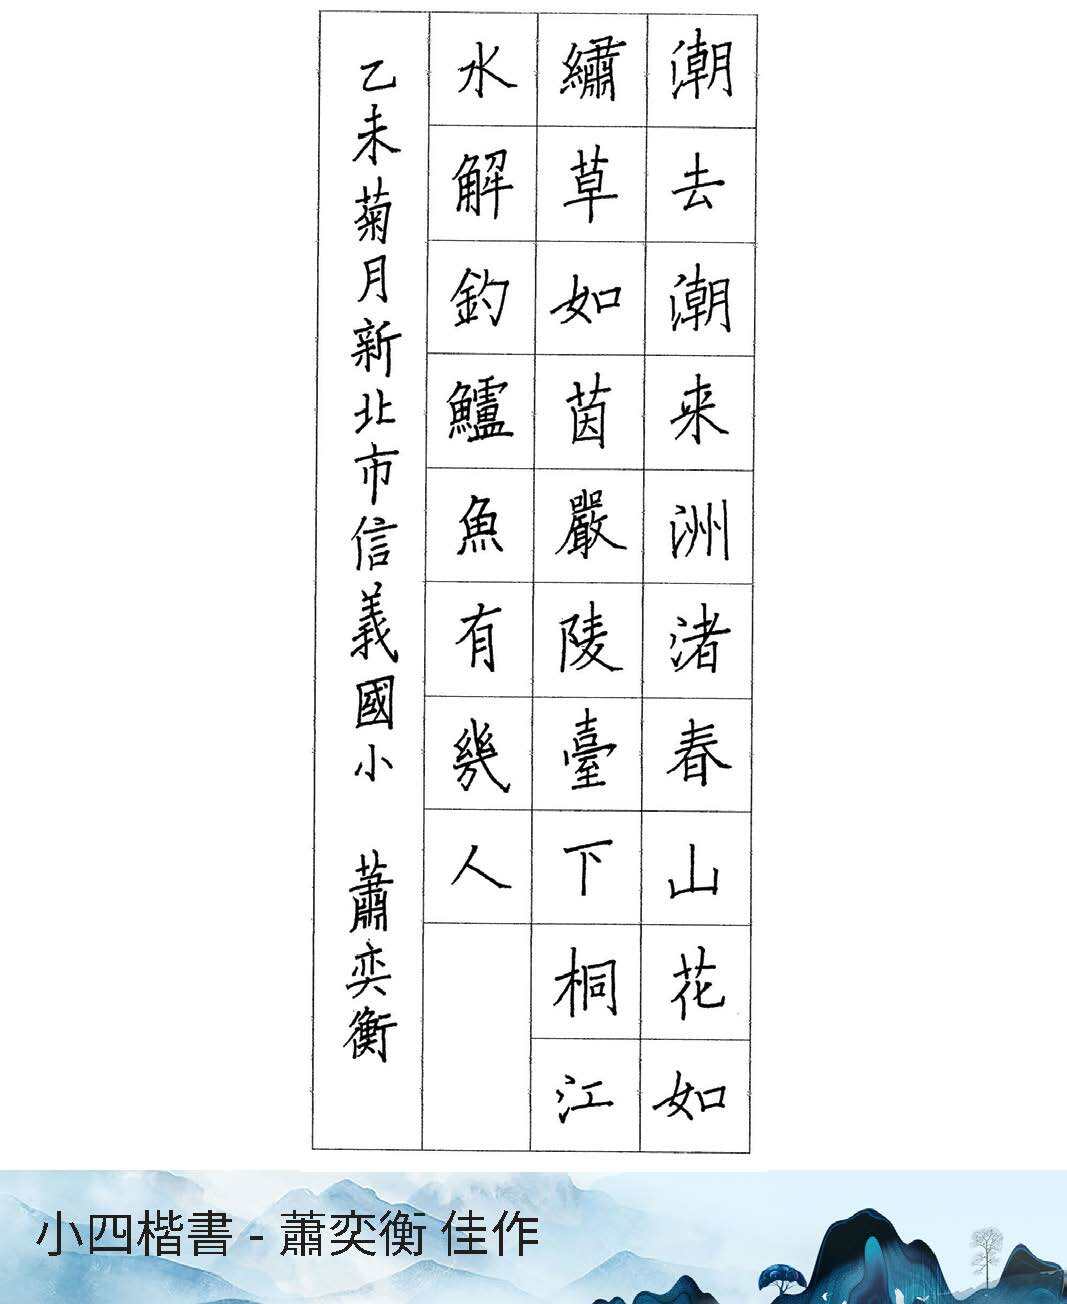 潮去潮来洲渚春山花如
繡草如茵嚴陵臺下桐江
水解釣鱸魚有幾人
乙未菊月新北市信義國小 蕭奕衡
小四楷書 - 蕭奕衡 佳作